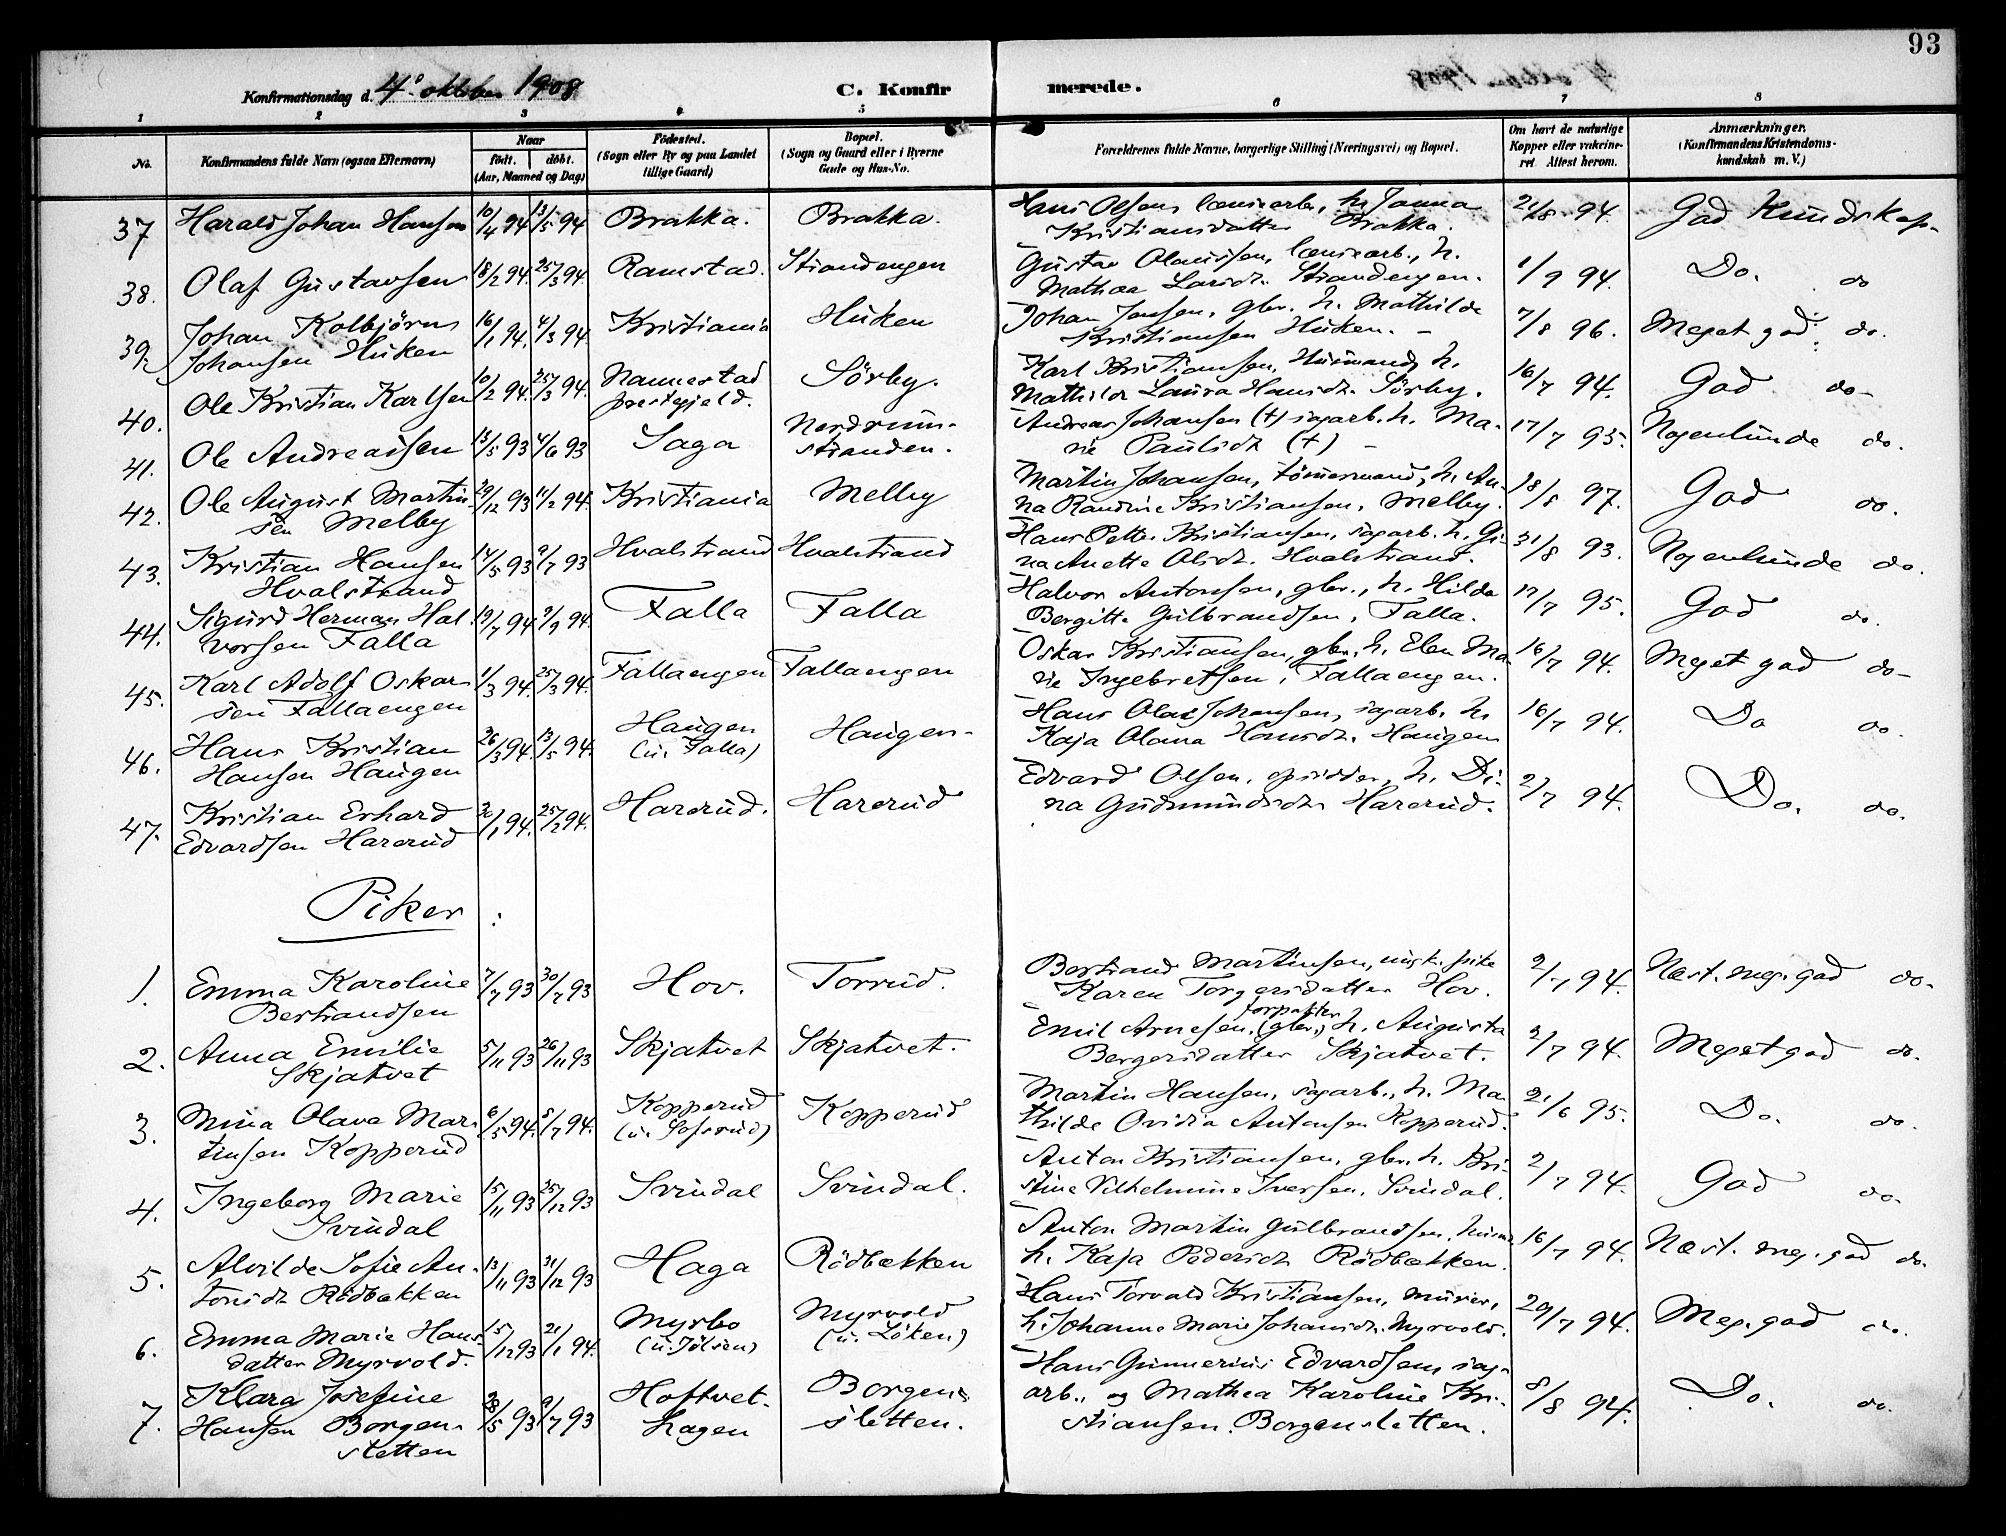 93
Konfirmationsdag d. 4. oktober 1908
C. Konfirmerede.
1 2 3 4 5 6 7 8
No. Konfirmandens fulde Navn (ogsaa Efternavn) Naar født. døbt. (Aar, Maaned og Dag) Födested. (Sogn eller By og paa Landet tillige Gaard) Bopæl. (Sogn og Gaard eller i Byerne Gade og Hus-No. Forældrenes fulde Navne, borgerlige Stilling (Næringsvei) og Bopæl. Om havt de naturlige Kopper eller vakcineret. Attest herom. Anmærkninger. (Konfirmandens Kristendomskundskab m. V.)
37 Harald Johan Hansen 10/4 94 13/5 94 Brakka. Brakka. Hans Olsen, h. Janna Kristiansdatter Brakka. 21/8 94. God Kundskap.
38. Olaf Gustavsen 18/2 94. 25/3 94 Ramstad. Strandengen Gustav Olaussen, h. Mathea Larsdt. Strandengen. 1/9 94. Do. do
39. Johan Kolbjörn Johansen Huken 16/1 94. 4/3 94 Kristiania Huken Johan Jensen, gbr. h. Mathilde Kristiansen Huken. 7/8 96. Meget god do.
40. Ole Kristian Karlsen 10/2 94. 25/3 94. Nannestad prestegjeld. Sörby. Karl Kristiansen, Husmand, h. Mathilde Laura Hansdt. Sörby. 16/7 94. God do
41. Ole Andreassen 13/5 93 4/6 93 Saga Nordrumstranden. Andreas Johansen (+) sagarb. h. Marie Paulsdt (+) 17/7 95. Nogenlunde do.
42. Ole August Martinsen Melby 29/12 93 11/2 94. Kristiania Melby Martin Johansen, tömmermand, h. Anna Randine Kristiansen, Melby. 18/8 97. God do.
43. Kristian Hansen Hvalstrand 14/5 93 9/7 93 Hvalstrand Hvalstrand Hans Petter Kristiansen, sagarb. h. Gina Anette Olsdt. Hvalstrand. 31/8 93. Nogenlunde do.
44. Sigurd Herman Halvorsen Falla 19/7 94 9/9 94. Falla Falla Halvor Antonsen, gbr., h. Hilda Bergitte Gulbrandsen, Falla. 17/7 95. God do.
45. Karl Adolf Oskarsen Fallaengen 1/3 94. 25/3 94. Fallaengen Fallaengen Oskar Kristiansen, gbr. h. Elen Marie Ingebretsen, Fallaengen. 16/7 94. Meget god do
46. Hans Kristian Hansen Haugen 26/3 94. 13/5 94. Haugen (u. Falla) Haugen Hans Olaf Johansen, sagarb. h. Kaja Olava Hansdt. Haugen 16/7 94. Do do.
47. Kristian Erhard Edvardsen Harerud 20/1 94. 25/2 94. Harerud. Harerud Edvard Olsen, opsidder, h. Dina Gudmundsdt. Harerud. 2/7 94. Do. do.
Piker:
1. Emma Karoline Bertrandsen 7/7 93 30/7 93 Hov. Torrud. Bertrand Martinsen, ugift. pike Karen Torgersdatter Hov. 2/7 94. Næst. meg. god do.
2. Anna Emilie Skjatvet 5/11 93 26/11 93 Skjatvet Skjatvet. Emil Arnesen, (gbr.), forpakter h. Augusta Bergersdatter Skjatvet. 2/7 94. Meget god do.
3. Mina Olava Martinsen Kopperud 6/5 94. 8/7 94. Kopperud Kopperud Martin Hansen, sagarb., h. Mathilde Ovidia Antonsen Kopperud. 21/6 95. Do. do.
4. Ingeborg Marie Svindal 15/11 93 25/12 93 Svindal Svindal. Anton Kristiansen, gbr. h. Kristine Vilhelmine Iversen, Svindal. 2/7 94. God do.
5. Alvilde Sofie Antonsdt. Rödbækken 13/11 93 31/12 93 Haga Rödbækken Anton Martin Gulbrandsen, husm. h. Kaja Pedersdt Rödbækken. 16/7 94. Næst. meg. god do.
6. Emma Marie Hansdatter Myrvold. 15/12 93 21/1 94. Myrbo (u. Jölsen) Myrvold (u. Löken) Hans Torvald Kristiansen, murer, h. Johanne Marie Johansdt. Myrvold. 29/7 94. Meg. god do.
7. Klara Josefine Hansen Borgenstetten 28/5 93 9/7 93 Hoftvethagen Borgensletten. Hans Gunnerius Edvardsen, sagarb., og Mathea Karoline Kristiansen. Borgensletten. 8/8 94. Do. do.